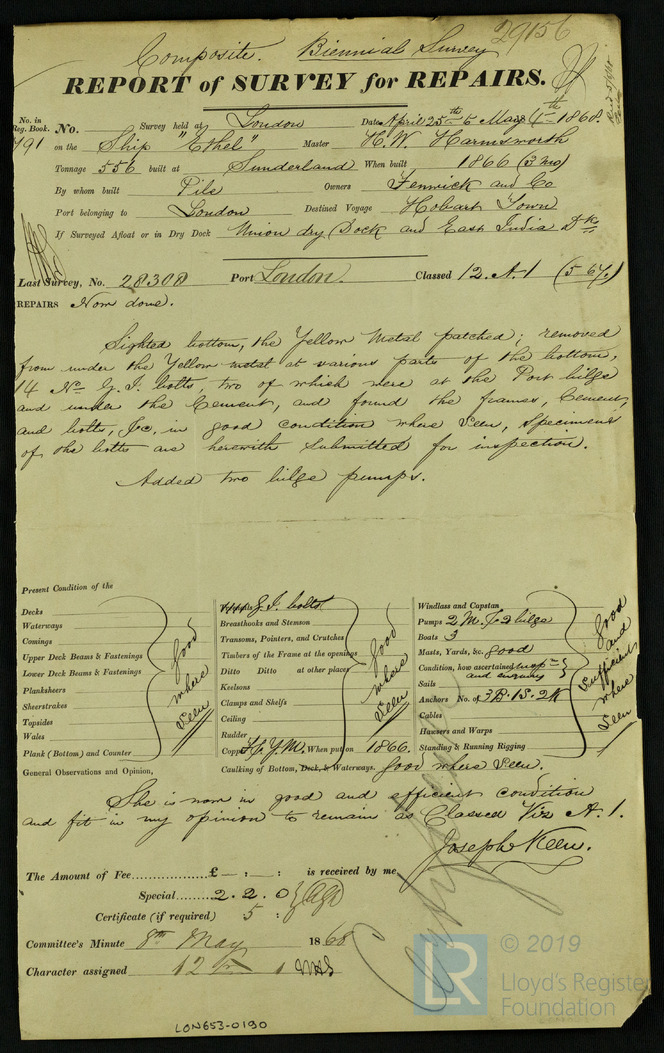 29156
Composite. Biennial Survey
REPORT of SURVEY for REPAIRS.
No. in Reg. Book. No. Survey held at London Date April 25th to May 4th 1868.
791 on the Ship "Ethel" Master H. W. Harmsworth
Tonnage 556 built at Sunderland When built 1866 (3 mo)
By whom built Pile Owners Fenwick and Co
Port belonging to London Destined Voyage Hobart Town
If Surveyed Afloat or in Dry Dock Union dry Dock and East India Dk
Last Survey, No. 28308 Port London. Classed 12. A. 1 (5-67.)
REPAIRS Now done.
Sighted bottom, the Yellow Metal patched; removed
from under the Yellow metal at various parts of the bottom,
14 No G. I. bolts, two of which were at the Port bilge
and under the Cement, and found the frames, Cement,
and bolts, &c, in good condition where Seen, Specimens
of the bolts are herewith Submitted for inspection.
Added two bilge pumps.
Present Condition of the
Decks
Waterways
Comings
Upper Deck Beams & Fastenings
Lower Deck Beams & Fastenings
Planksheers
Sheerstrakes
Topsides
Wales
Plank (Bottom) and Counter
good where Seen
G. I. bolts
Breasthooks and Stemson
Transoms, Pointers, and Crutches
Timbers of the Frame at the openings
Ditto Ditto at other places
Keelsons
Clamps and Shelfs
Ceiling
Rudder
Copper Y. M. When put on 1866.
Caulking of Bottom, Deck, & Waterways. good where Seen.
good where Seen
Windlass and Capstan
Pumps 2 M. & 2 bilge
Boats 3
Masts, Yards, &c. good
Condition, how ascertained
Sails
Anchors No. of 3 B. 1 S. 2 K
Cables
Hawsers and Warps
Standing & Running Rigging
good and Sufficient where Seen
General Observations and Opinion,
She is now in good and efficient condition
and fit in my opinion to remain as Classed Viz A. 1.
Joseph Keen.
The Amount of Fee £ — : — : is received by me
Special 2. 2. 0
Certificate (if required) 5 :
Committee's Minute 8th May 1868
Character assigned 12 A 1
LON653-0190
LR © 2019
Lloyd's Register
Foundation